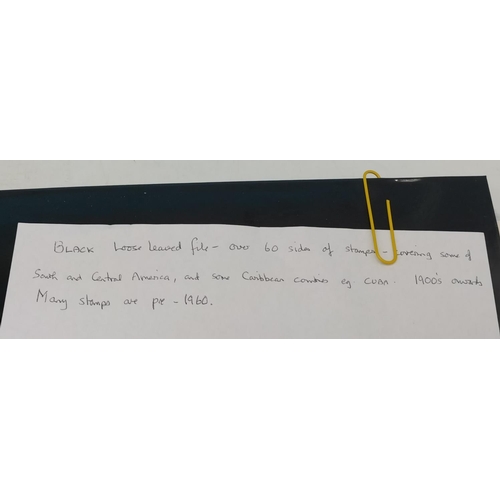 BLACK Loose leaved file - over 60 sides of stamps - covering some of
South and Central America, and some Caribbean countries eg CUBA. 1900's onwards
Many stamps are pre - 1960.